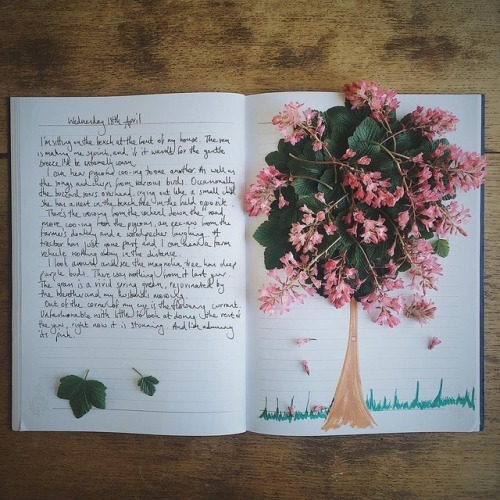 Wednesday 18th April
I'm sitting on the bench at the front of my house. The sun
is making me squint, and if it wasn't for the gentle
breeze I'd be entirely warm.
I can hear pigeons coo-ing to one another. As well as
the pings and chirps from various birds. Occasionally
the buzzard soars overhead, crying out like a small child
She has a nest in the beech tree in the field opposite.
There's the cawing from the rooks down the road,
more cooing from the pigeons, an eee-aw from the
farmer's donkey and a woodpecker laughing. A
tractor has just gone past and I can hear a farm
vehicle working away in the distance.
I look around and see the magnolia tree has deep
purple buds. There was nothing from it last year.
The grass is a vivid spring green, rejuvenated by
the weather and my husband's mowing.
Out of the corner of my eye is the flowering currant.
Unfashionable with little to look at during the rest of
the year, right now it is stunning. And I'm admiring
its pink.